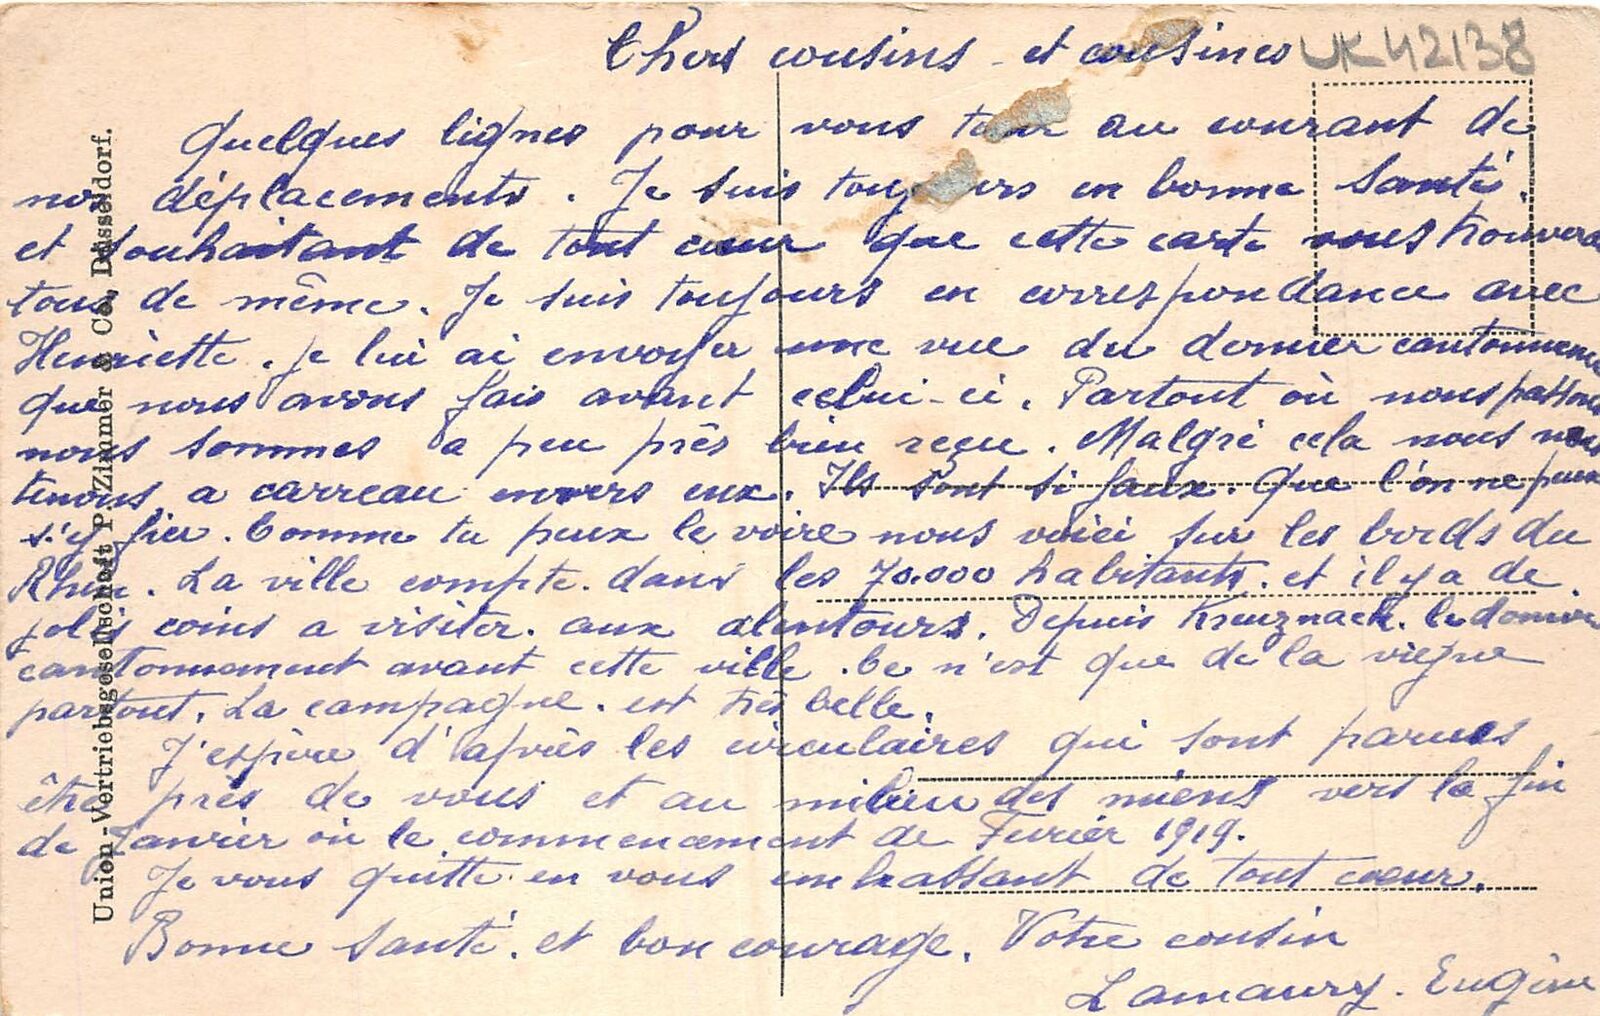 Chers cousins et cousines
UK42138
Quelques lignes pour vous tenir au courant de
nos déplacements. Je suis toujours en bonne santé.
et souhaitant de tout cœur que cette carte vous trouvera
tous de même. Je suis toujours en correspondance avec
Henriette. je lui ai envoyer une vue du dernier cantonnement
que nous avons fais avant celui-ci. Partout où nous passons
nous sommes a peu près bien reçu. Malgré cela nous nous
tenons a carreau envers eux. Ils sont si faux. Que l'on ne peux
s'y fier. Comme tu peux le voire nous voici sur les bords du
Rhin. La ville compte. dans les 70.000 habitants. et il y a de
jolis coins a visiter. aux alentours. Depuis Kreuznach. le dernier
cantonnement avant cette ville. Ce n'est que de la vigne
partout. La campagne. est très belle.
J'espère d'après les circulaires qui sont parues
être près de vous et au milieu des miens vers la fin
de Janvier où le commencement de Fevrier 1919.
Je vous quitte en vous embrassant de tout cœur.
Bonne santé. et bon courage. Votre cousin
Lamaury. Eugène
Union-Vertriebsgesellschaft P. Zimmer & Co., Düsseldorf.